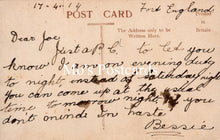 17-4-14
Frt England.
POST CARD
The Address only to be
Written Here.
Printed in Britain
Dear Joe
Just a P.C. to let you
know I am on evening duty
to night instead of Saturday night
you can come up the usual
time to morrow night; if you
dont mind in haste
Bessie